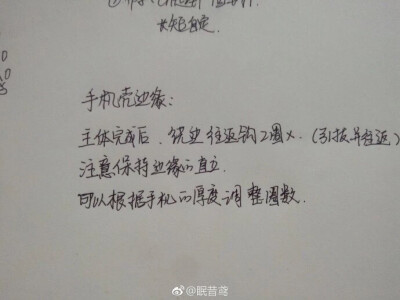 长短自定.
手机壳边缘:
主体完成后、绕边往返钩2圈X.(引拔并往返)
注意保持边缘的直立.
可以根据手机的厚度调整圈数.
@眠昔鸢